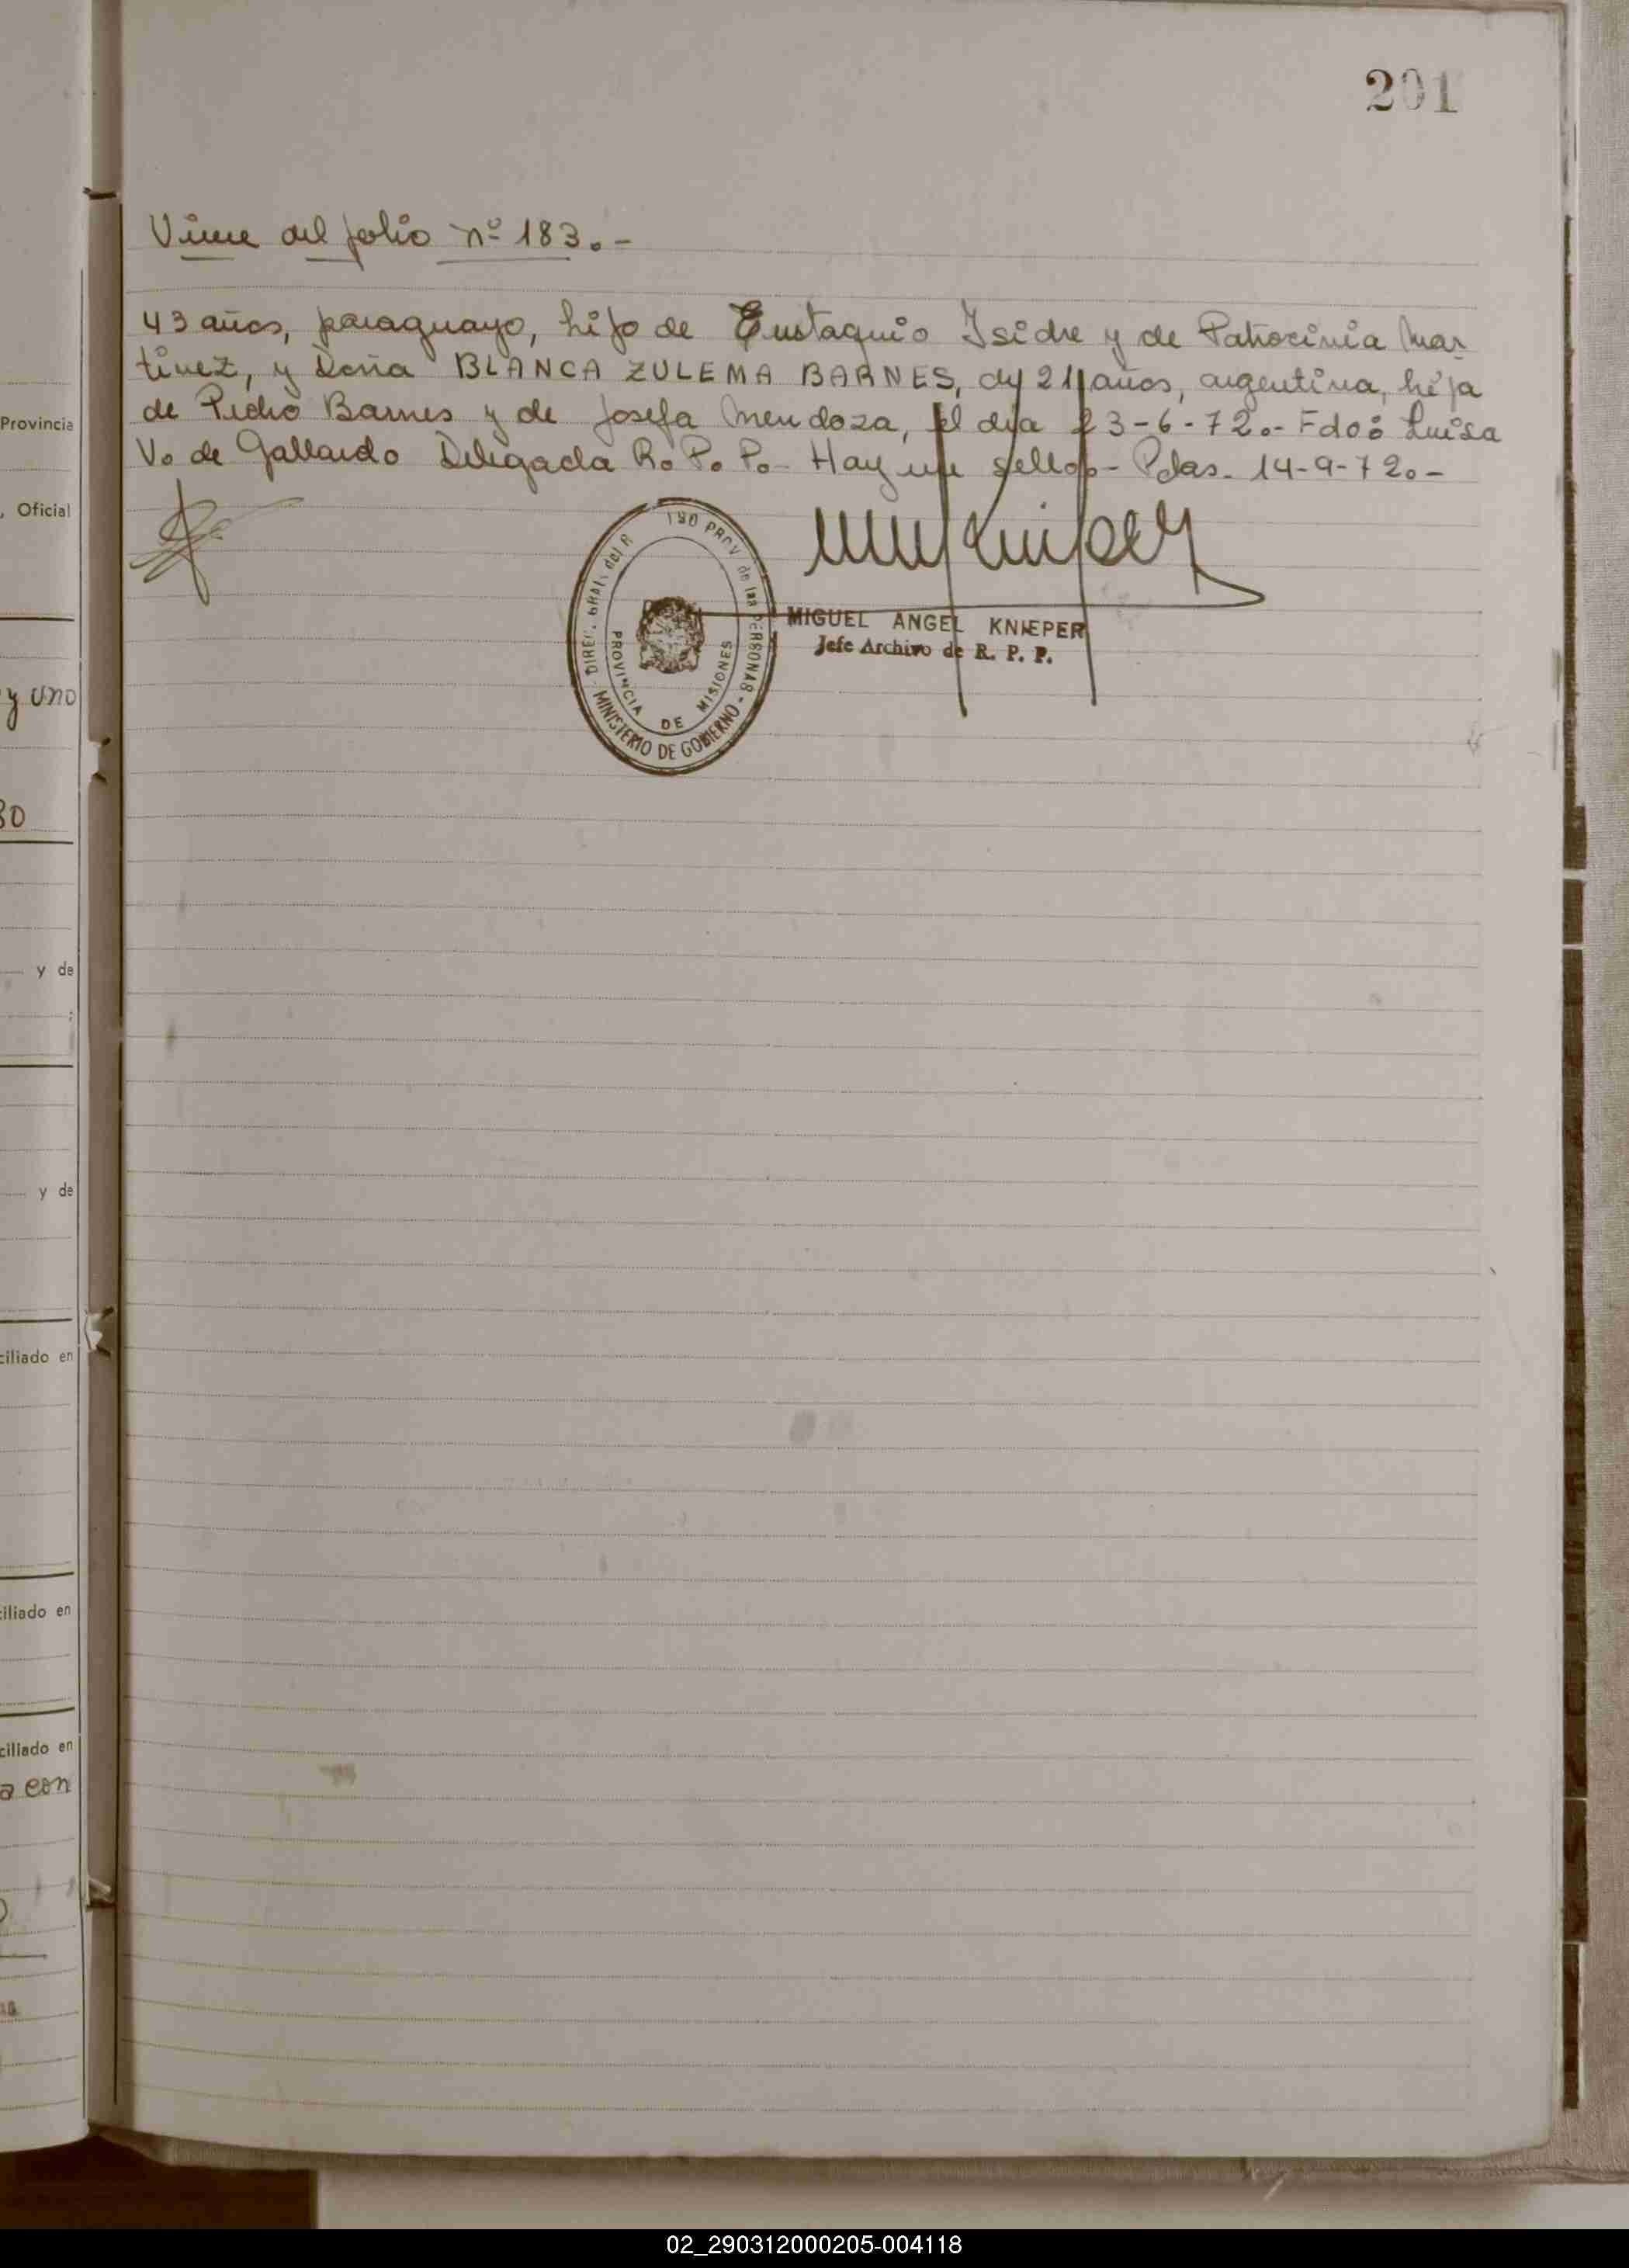 201
Viene del folio nº 183.-
43 años, paraguayo, hijo de Eustaquio Isidre y de Patrocinia Mar
tinez, y Doña BLANCA ZULEMA BARNES, de 21 años, argentina, hija
de Pedro Barnes y de Josefa Mendoza, el dia 23-6-72.- Fdo: Luisa
V. de Gallardo Delegada R.P.P.- Hay un sello.- Pdas. 14-9-72.-
DIREC. GRAL. del R PROV de las PERSONAS
MINISTERIO DE GOBIERNO
PROVINCIA DE MISIONES
MIGUEL ANGEL KNIEPER
Jefe Archivo de R. P. P.
Provincia
, Oficial
y uno
30
y de
;
y de
ciliado en
iliado en
ciliado en
a con
02_290312000205-004118